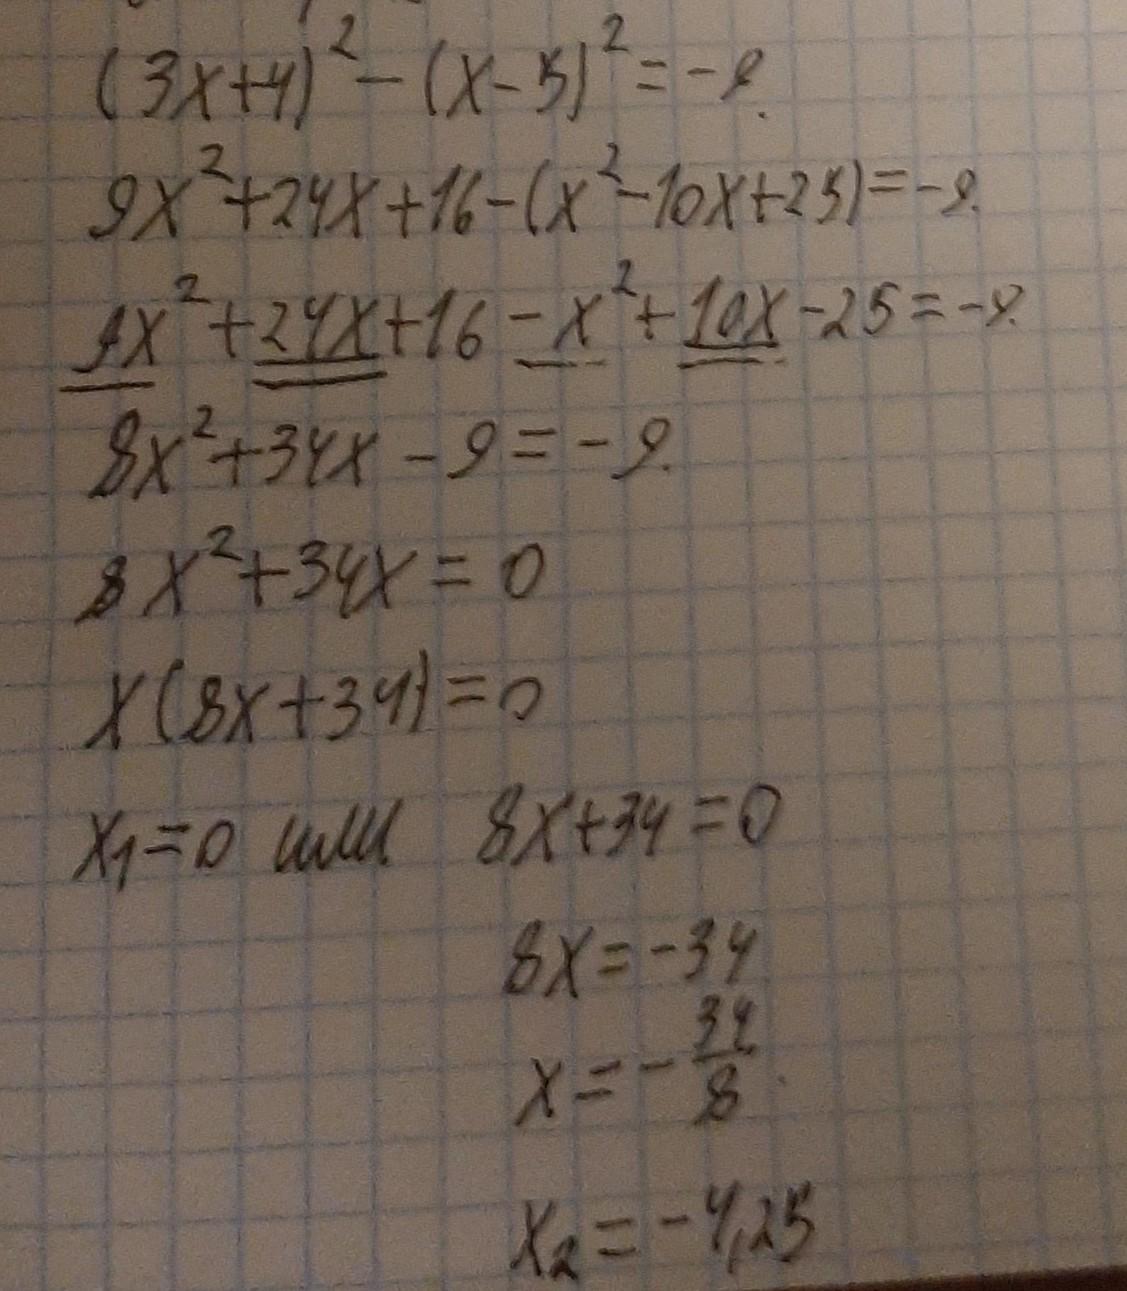 (3x+4)² - (x-5)² = -9.
9x² + 24x + 16 - (x² - 10x + 25) = -9.
9x² + 24x + 16 - x² + 10x - 25 = -9.
8x² + 34x - 9 = -9.
8x² + 34x = 0
x(8x + 34) = 0
x₁ = 0 или 8x + 34 = 0
8x = -34
x = -34/8
x₂ = -4,25